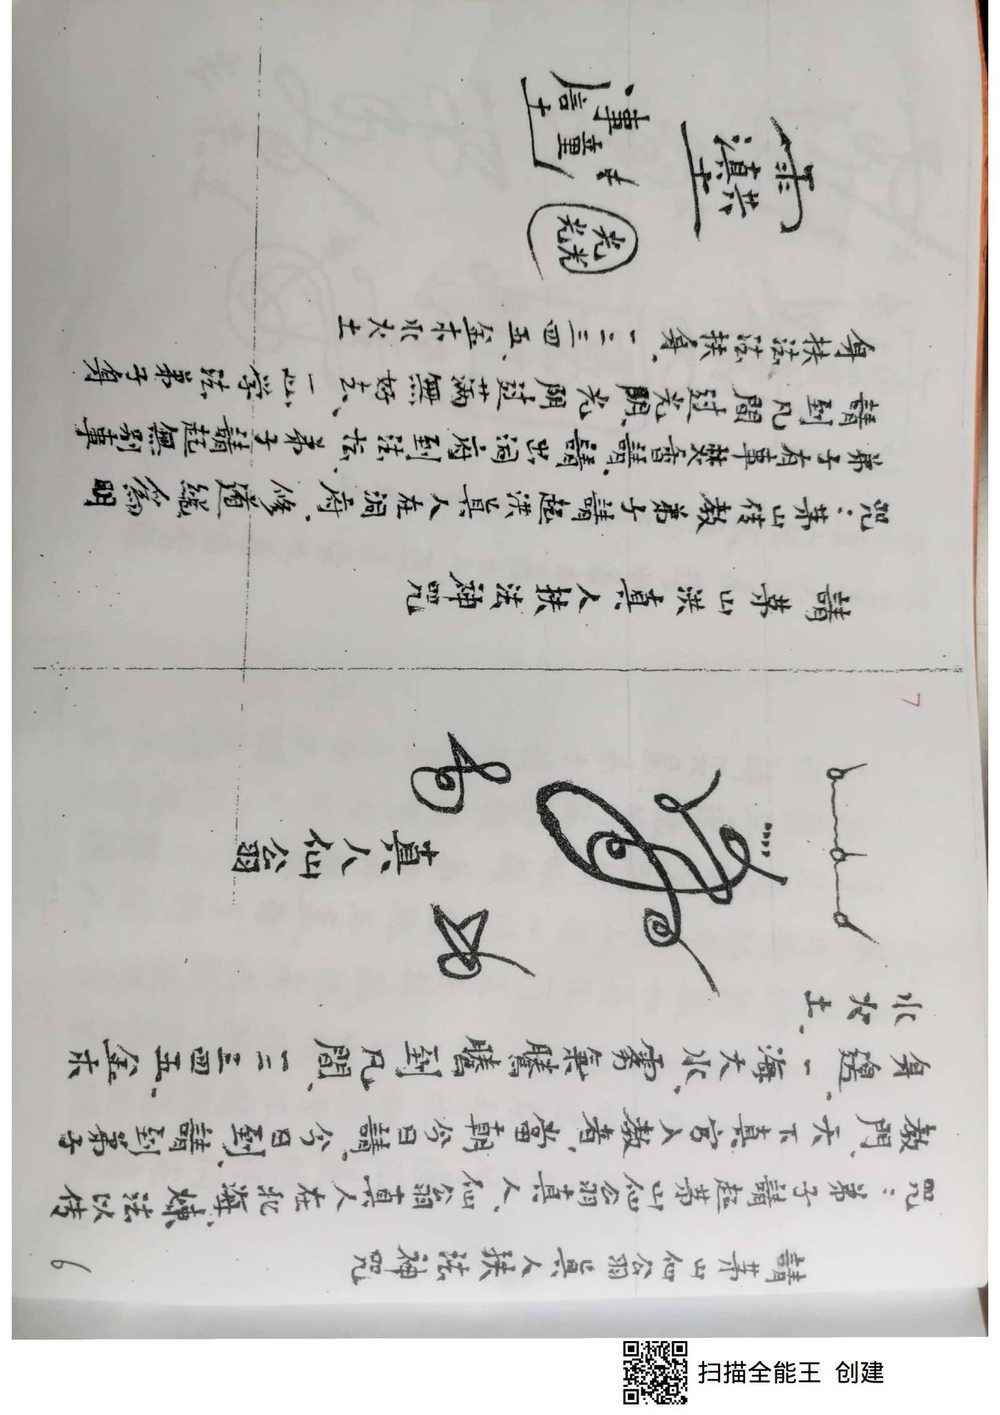 請茅山仙公翁真人扶法神咒
咒:弟子請起茅山仙公翁真人、仙公翁真人在北海煉法以传
教門、天下真官人教者、當朝今日請、今日請到弟子
身邊、一海大水、雾氣騰騰到凡間、一二三四五、金木
水火土、
真人仙公翁
6
7
請茅山洪真人扶法神咒
咒:茅山传教弟子請起洪真人在洞府、修道総為明
弟子有事焚香請、請出洞府到法坛、弟子請起無別事
請到凡間过光阴、光阴过满無好去、一心学法弟子身
身扶法法扶身、一二三四五、金木水火土
光光光
扫描全能王 创建